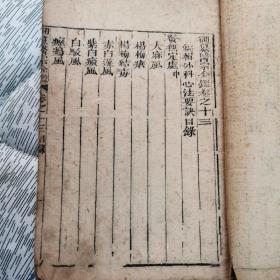 御纂醫宗金鑑卷之十三
編輯外科心法要訣目錄
發無定處中
大麻風
楊梅瘡
楊梅結毒
赤白遊風
紫白癜風
白駁風
癧瘍風